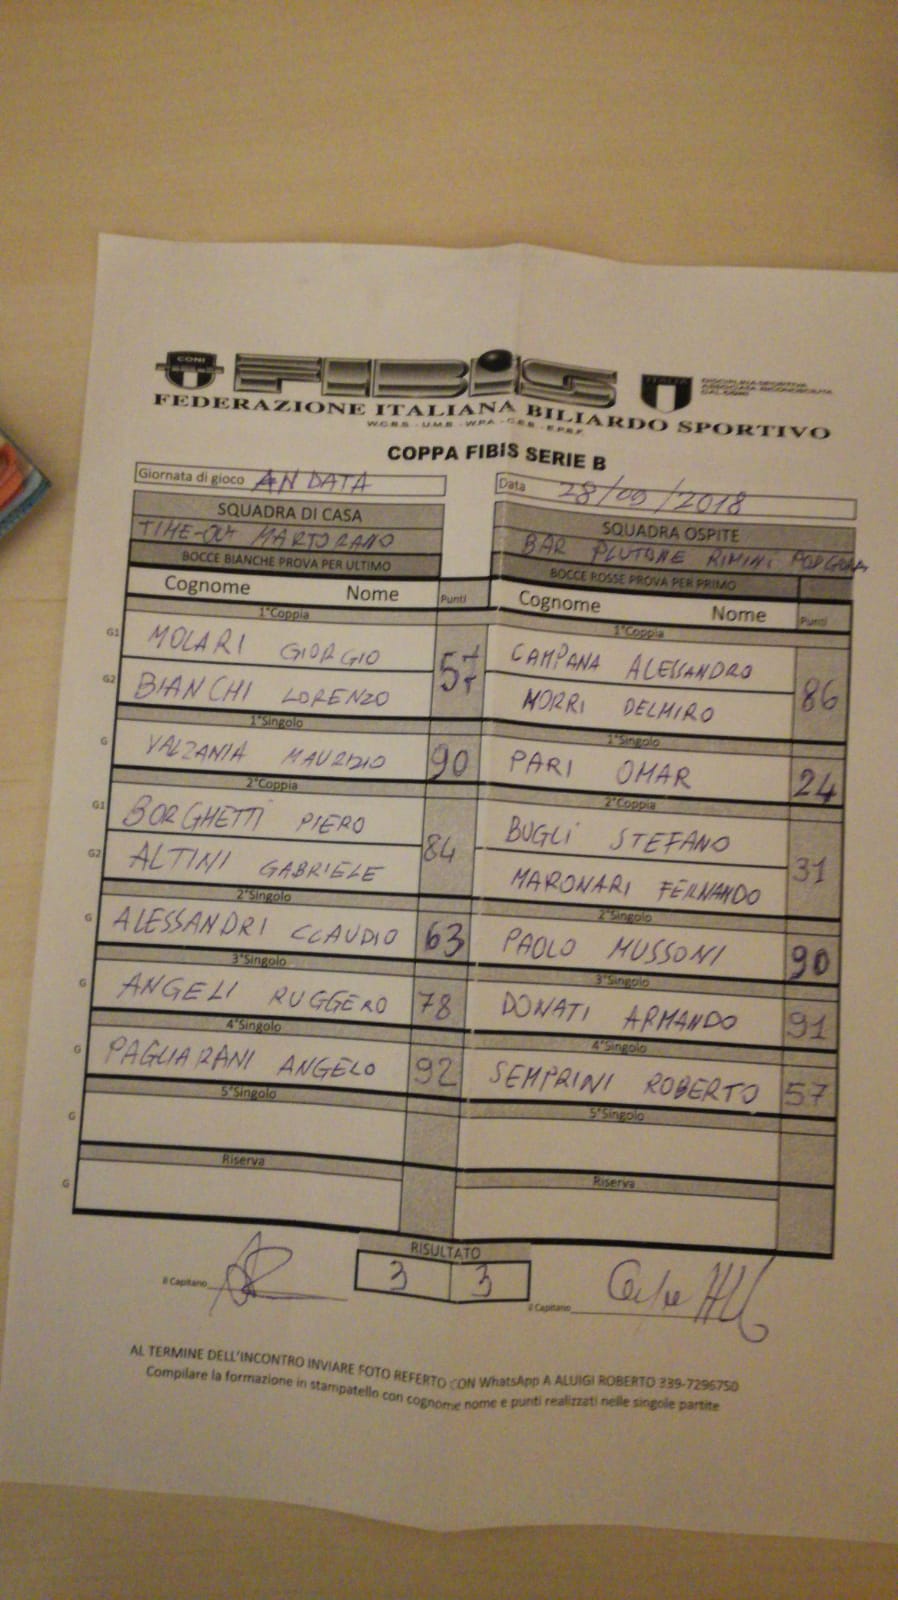 CONI
FIBiS
ITALIA
DISCIPLINA SPORTIVA
ASSOCIATA RICONOSCIUTA
DAL CONI
FEDERAZIONE ITALIANA BILIARDO SPORTIVO
W.C.B.S. - U.M.B. - W.P.A. - C.E.B. - E.P.B.F.
COPPA FIBIS SERIE B
Giornata di gioco ANDATA Data 28/09/2018
SQUADRA DI CASA SQUADRA OSPITE
TIME-OUT MARTORANO BAR PLUTONE RIMINI
BOCCE BIANCHE PROVA PER ULTIMO BOCCE ROSSE PROVA PER PRIMO
Cognome Nome Punti Cognome Nome Punti
1°Coppia 1°Coppia
G1 MOLARI GIORGIO 57 CAMPANA ALESSANDRO 86
G2 BIANCHI LORENZO MORRI DELMIRO
1°Singolo 1°Singolo
G VALZANIA MAURIZIO 90 PARI OMAR 24
2°Coppia 2°Coppia
G1 BORGHETTI PIERO 84 BUGLI STEFANO 31
G2 ALTINI GABRIELE MARONARI FERNANDO
2°Singolo 2°Singolo
G ALESSANDRI CLAUDIO 63 PAOLO MUSSONI 90
3°Singolo 3°Singolo
G ANGELI RUGGERO 78 DONATI ARMANDO 91
4°Singolo 4°Singolo
G PAGLIARANI ANGELO 92 SEMPRINI ROBERTO 57
5°Singolo 5°Singolo
G
Riserva Riserva
G
RISULTATO
3 3
Il Capitano Il Capitano
AL TERMINE DELL'INCONTRO INVIARE FOTO REFERTO CON WhatsApp A ALUIGI ROBERTO 339-7296750
Compilare la formazione in stampatello con cognome nome e punti realizzati nelle singole partite